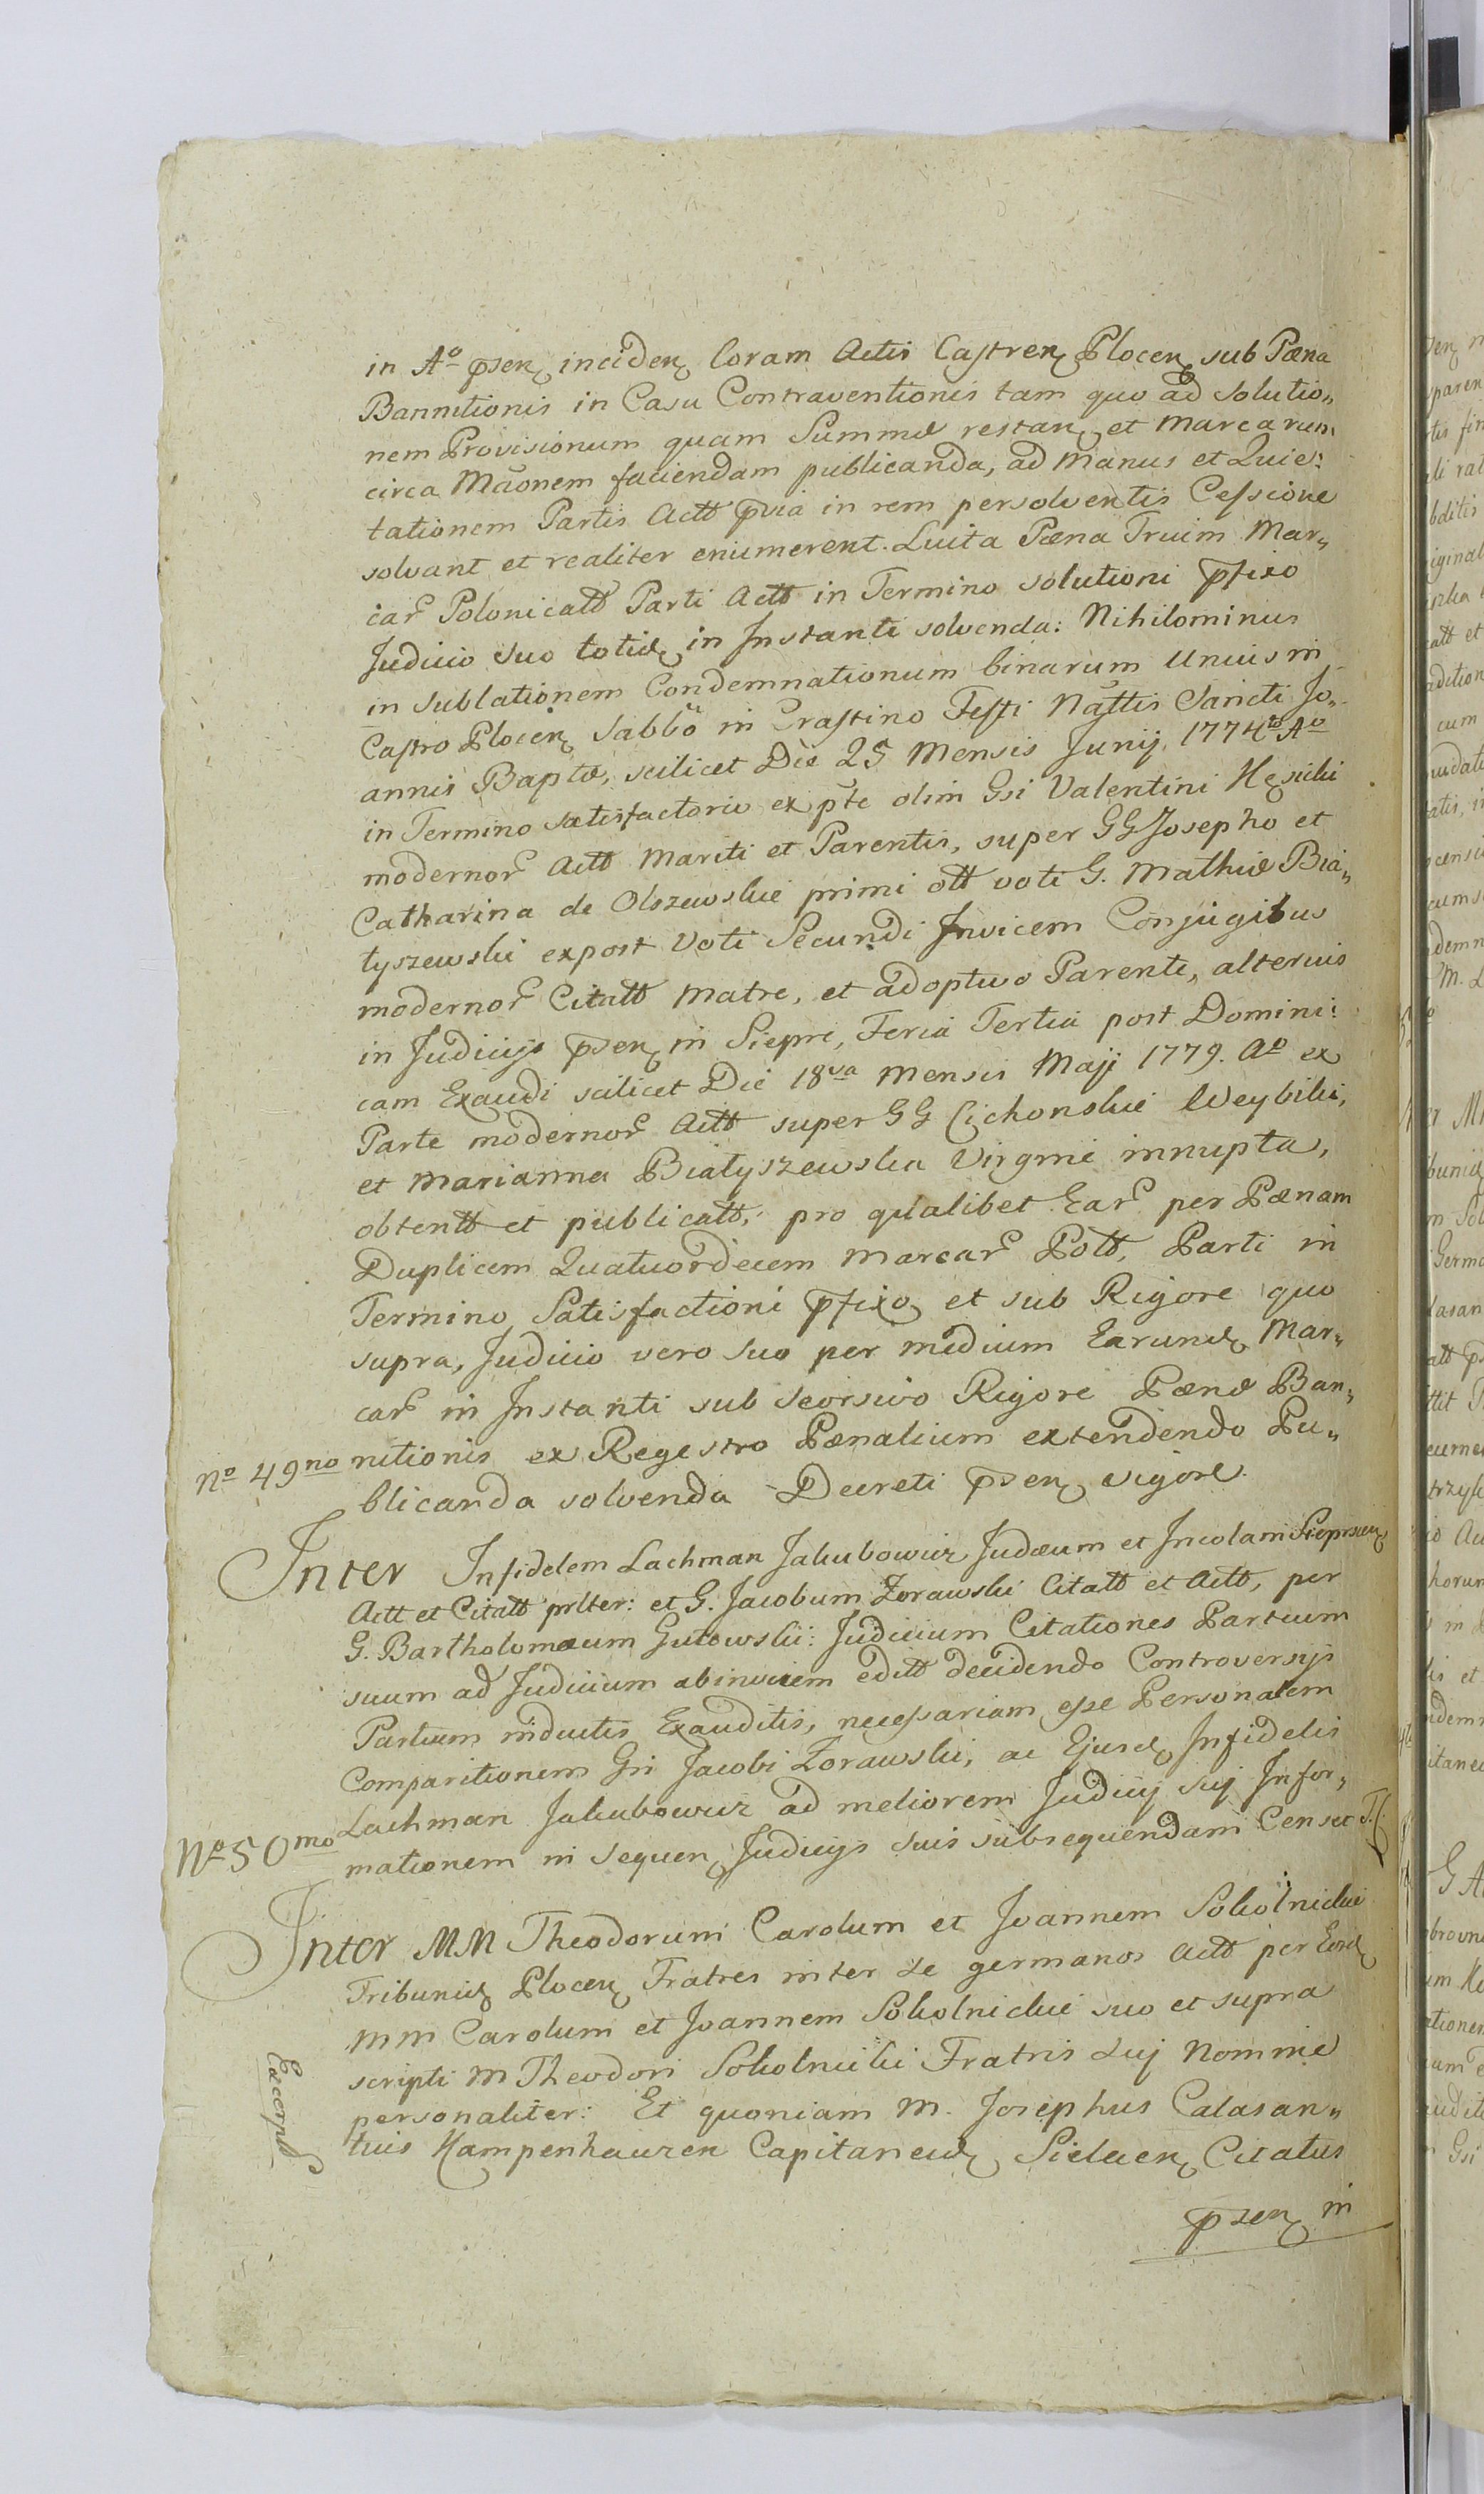 in A° psen inciden Coram Actis Castren Plocen sub Pæna
Bannitionis in Casu Contraventionis tam quo ad Solutio„
nem Provisionum quam Summæ restan et Marcarum
circa Mãonem faciendam publicanda, ad Manus et Quie:
tationem Partis Actt pvia in rem persolventis Cessione
solvant et realiter enumerent. Luita Pæna Trium Mar„
car Polonicatt Parti Actt in Termino solutioni pfixo
Judicio suo totid in Instanti solvenda: Nihilominus
in sublationem Condemnationum binarum Unius in
Castro Plocen Sabbõ in Crastino Festi Nattis Sancti Jo„
annis Baptæ, scilicet Die 25 Mensis Junij 1774to A°
in Termino satisfactorio ex pte olim Gsi Valentini Kęsicki
modernor Actt Mariti et Parentis, super GG Josepho et
Catharina de Olszewskie primi ott voti G. Mathiæ Bia„
łyszewski expost Voti Secundi Invicem Conjugibus
modernor Citatt Matre, et adoptivo Parente, alterius
in Judicijs psen in Siepre, Feria Tertia post Domini:
cam Exaudi scilicet Die 18va Mensis Maji 1779. A° ex
Parte modernor Actt super GG Cichonskie Weybiki,
et Marianna Białyszewska Virgine innupta,
obtentt et publicatt, pro qualibet Ear per Pænam
Duplicem Quatuordecem Marcar Pott, Parti in
Termino Satisfactioni pfixo et sub Rigore quo
supra, Judicio vero suo per medium Earund Mar„
car in Instanti sub seorsivo Rigore Pænæ Ban„
nitionis ex Regestro Pænalium extendendo Pu„
blicanda solvenda Decreti psen vigore.
No 49no
Inter Infidelem Lachman Jakubowicz Judæum et Incolam Sieprcen
Actt et Citatt prlter: et G. Jacobum Zorawski Citatt et Actt, per
G. Bartholomæum Gutowski: Judicium Citationes Partium
suum ad Judicium abinvicem editt decidendo Controversijs
Partium inductis Exauditis, necessariam esse Personalem
Comparitionem Gni Jacobi Zorawski, ac Ejusd Infidelis
Lachman Jakubowicz ad meliorem Judicij sui Infor„
mationem in sequen Judicijs suis subsequendam Censet
No 50mo
Inter MM Theodorum Carolum et Joannem Sokolnickie
Tribunid Plocen Fratres inter se germanos Actt per Eosd
MM Carolum et Joannem Sokolnickie suo et supra
scripti M Theodori Sokolnicki Fratris sui Nomine
personaliter: Et quoniam M. Josephus Calasan„
tius Kampenhauzen Capitaneud Sielucen Citatus
Excerpt
psen in